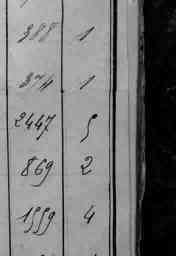 388 1
374 1
2447 5
869 2
1559 4